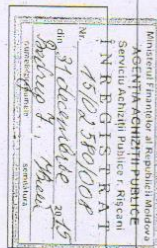 Ministerul Finanțelor al Republicii Moldova
AGENȚIA ACHIZIȚII PUBLICE
Serviciu Achiziții Publice r. Rîșcani
ÎNREGISTRAT
Nr. 15/02580/001
din 31 decembrie 2015
numele/prenumele semnătura